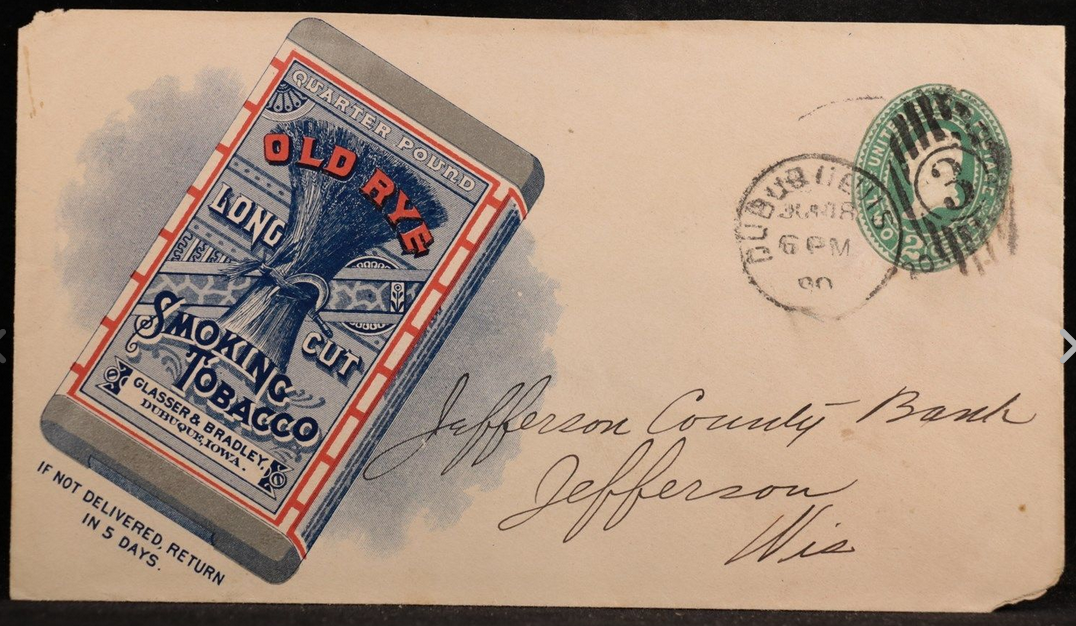 QUARTER POUND
OLD RYE
LONG
CUT
SMOKING
TOBACCO
GLASSER & BRADLEY,
DUBUQUE, IOWA.
IF NOT DELIVERED, RETURN
IN 5 DAYS.
DUBUQUE
6 PM
90
3
UNITED
2
Jefferson County Bank
Jefferson
Wis